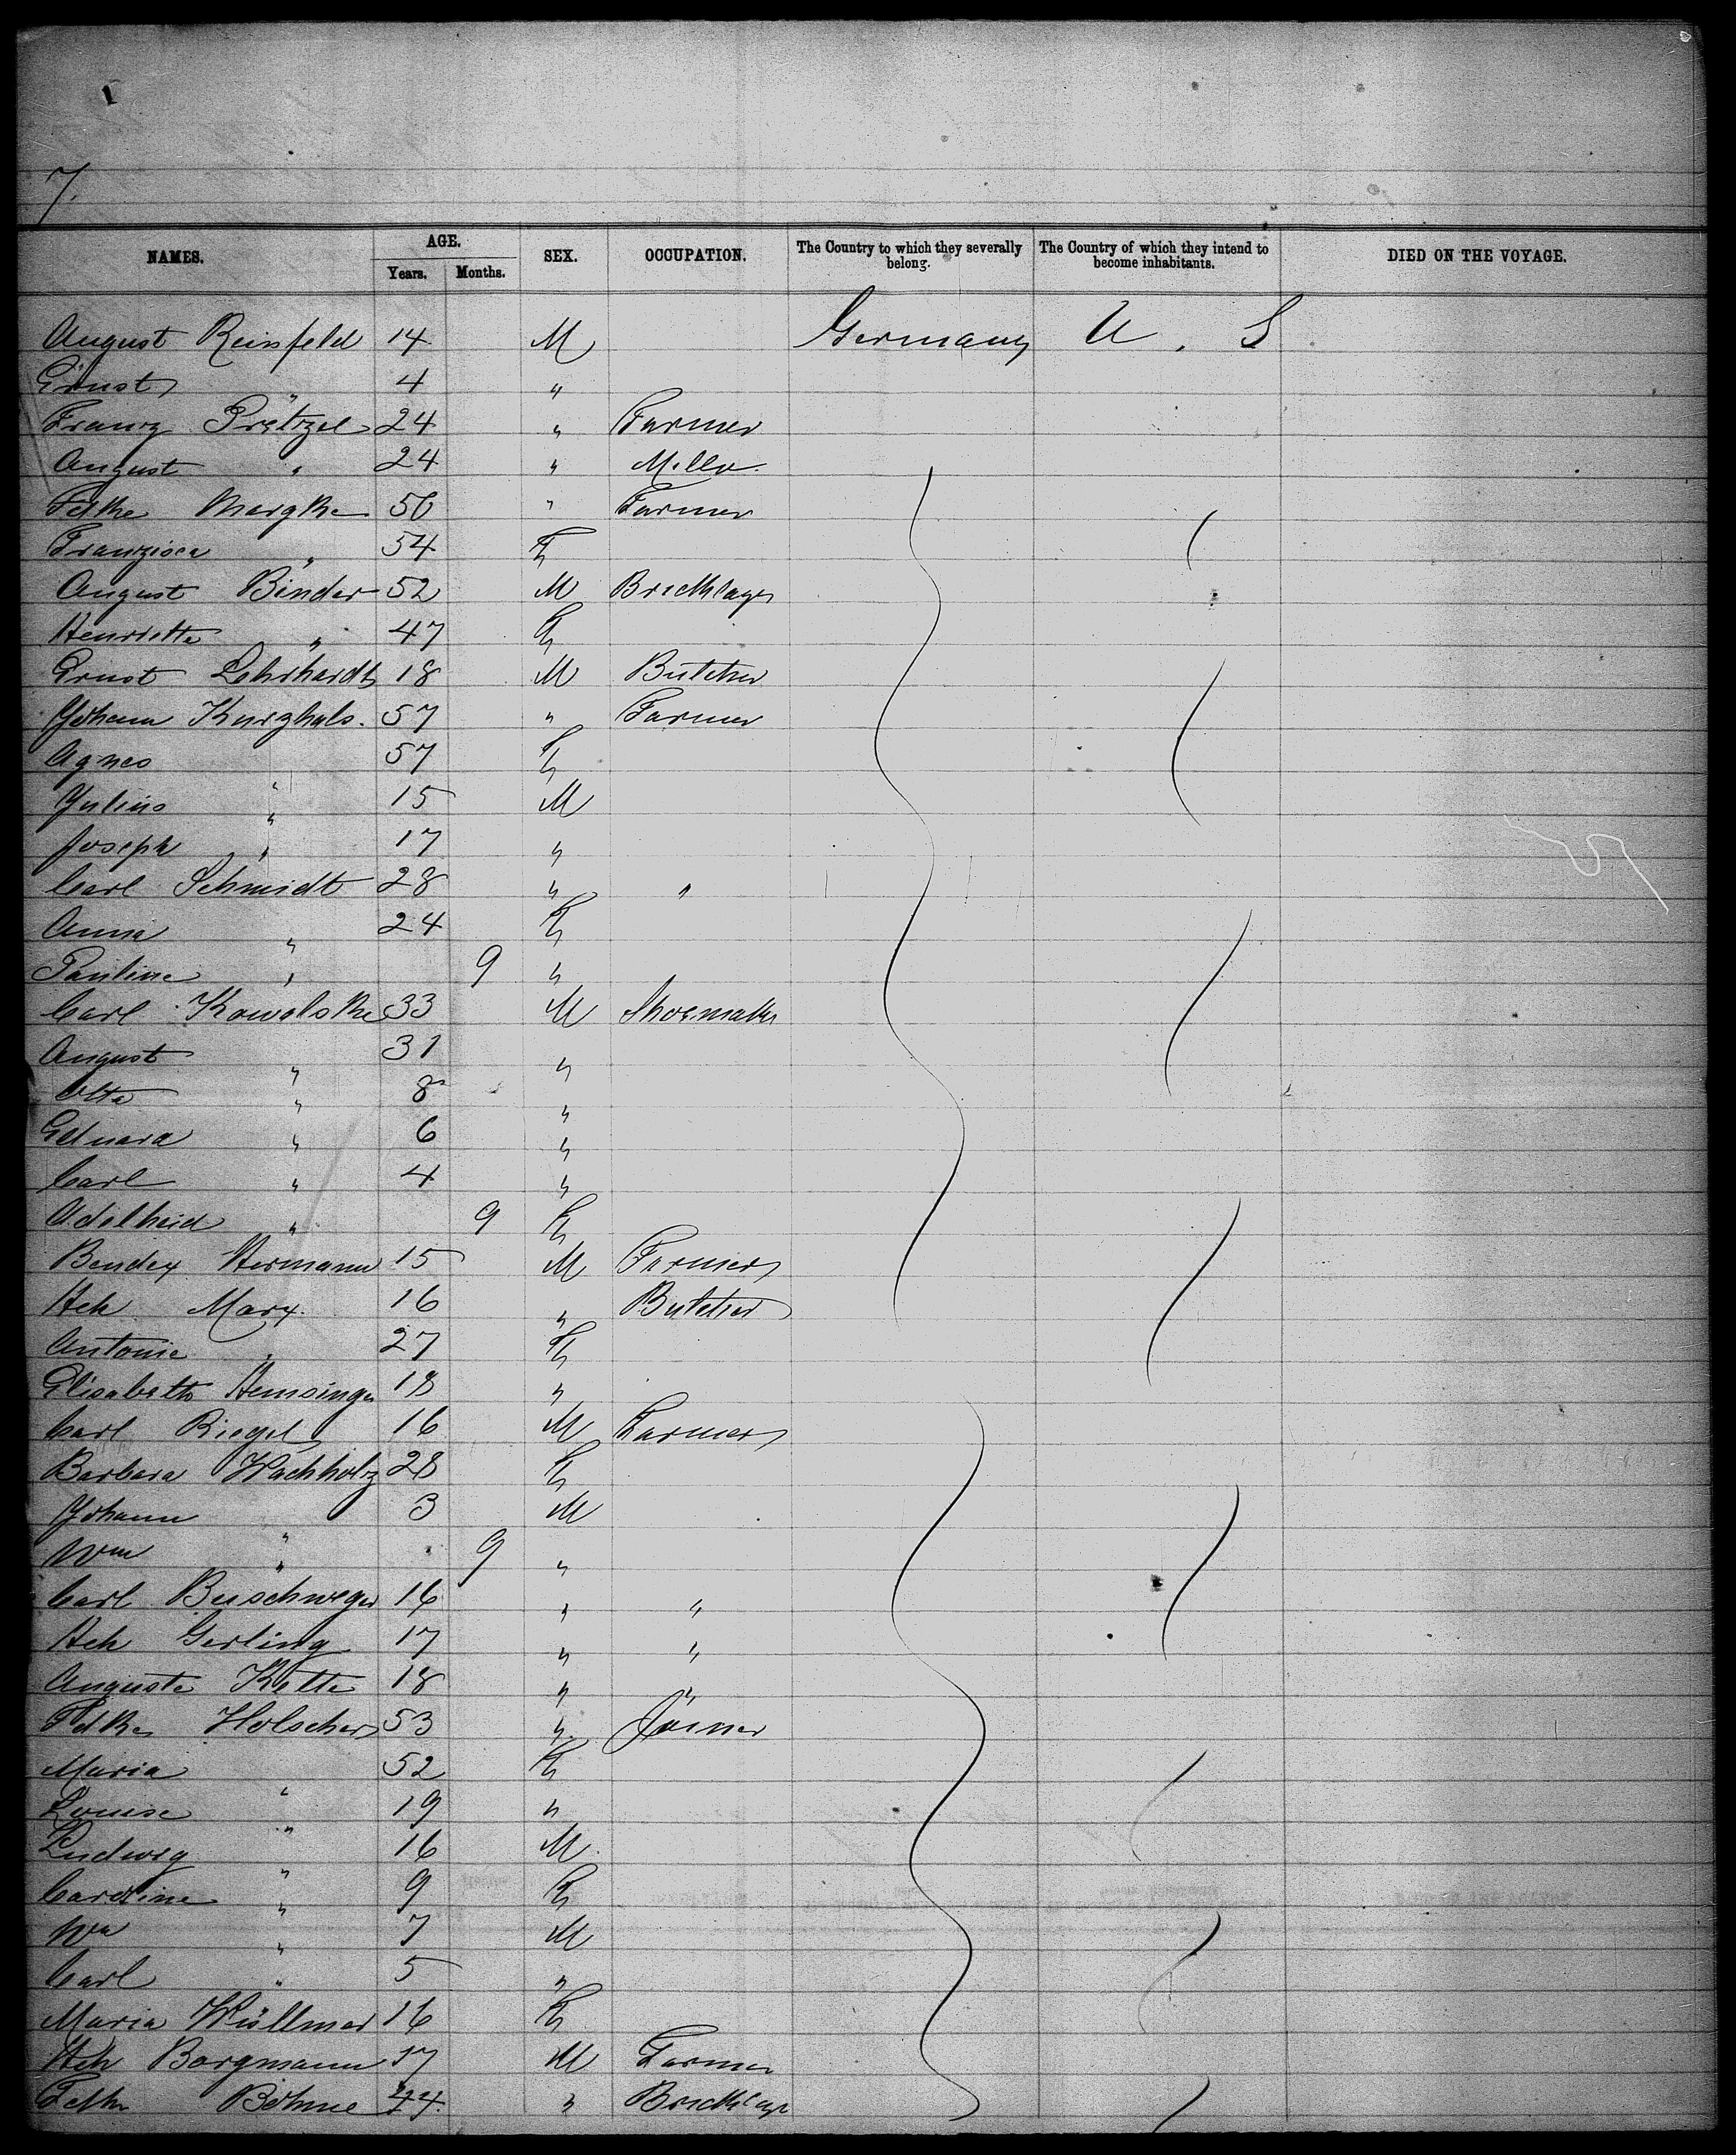 7.
NAMES. AGE. SEX. OCCUPATION. The Country to which they severally belong. The Country of which they intend to become inhabitants. DIED ON THE VOYAGE.
Years. Months.
August Reinfeld 14 M Germany U. S
Ernst " 4 "
Franz Prätzel 24 " Farmer
August " 24 " Miller
50 " Farmer
Franzisca " 54 F
August Binder 52 M Bricklayer
Henriette " 47 F
Ernst Lehrhardt 18 M Butcher
Johann Kurzhals. 57 " Farmer
Agnes " 57 F
Julius " 15 M
Joseph " 17 "
Carl Schmidt 28 " "
Anna " 24 F
Pauline " 9 "
Carl Kowalske 33 M Shoemaker
August " 31 "
Otto " 8 "
Eduard " 6 "
Carl " 4 "
Adelheid " 9 F
Bendex Hermann 15 M Farmer
Hch Marx. 16 " Butcher
Antonie " 27 F
Elisabeth Hensinger 18 "
Carl Riegel 16 M Farmer
Barbara Wachholz 28 F
Johann " 3 M
Wm " 9 "
Carl Buschweger 16 " "
Hch Gerling 17 " "
Auguste Kette 18 " "
Fdke Holscher 53 " Joiner
Maria " 52 F
Louise " 19 "
Ludwig " 16 M
Caroline " 9 F
Wm " 7 M
Carl " 5 "
Maria Wüllmer 16 F
Hch Borgmann 17 M Farmer
Böhme 24 " Bricklayr